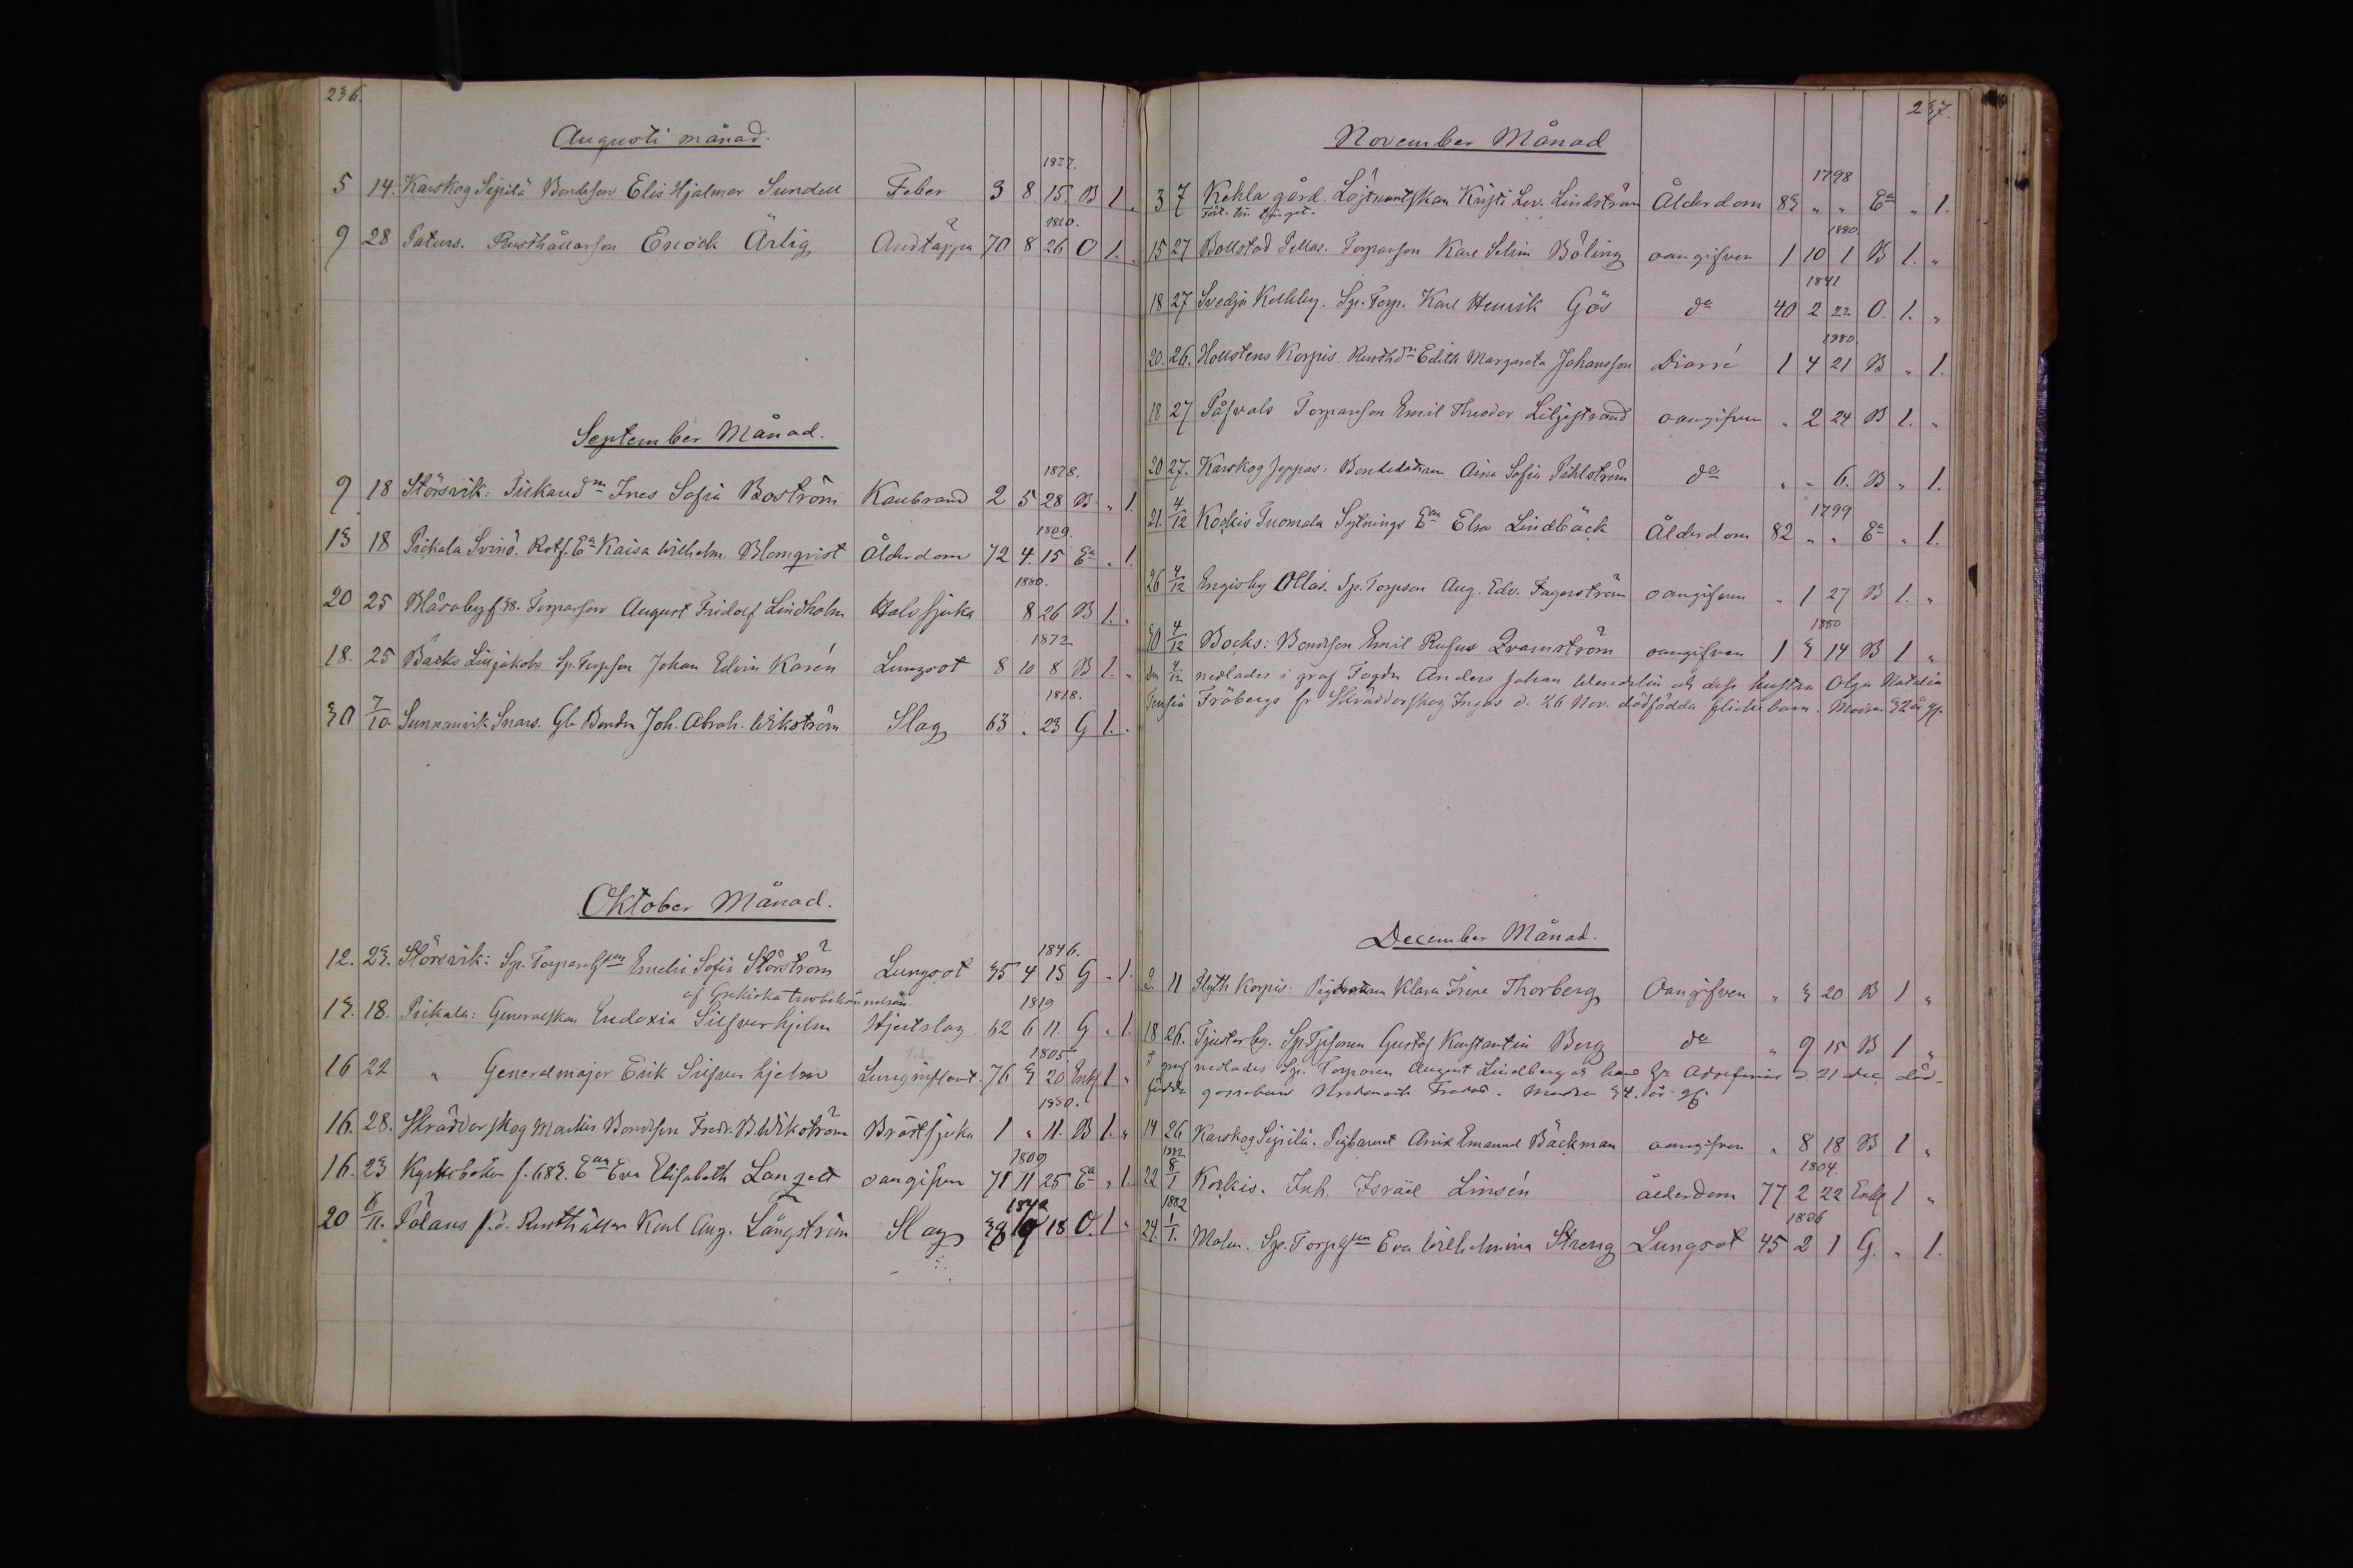 236.
Augusti månad.
1877.
5 14. Karskog Sipilä Bondeson Elis Hjalmar Sundell Feber 3 8 15. B 1 „
1810.
9 28 Paturs. Rusthållarson Enock Ärlig Andtäppa 70 8 26 O 1. „
September Månad.
1878.
9 18 Störsvik: Ines Sofia Boström Kanbrand 2 5 28 B „ 1.
1809.
13 18 Pickala Svinö. Rotf. Ea Kaisa Wilhelm. Blomqvist Ålderdom 72 4. 15 Ea „ 1.
1880.
20 25 Blåsaby f 38. Torparson August Fridolf Lindholm Halssjuka 8 26 B 1. „
1872
18. 25 Backs Liljakobs Sp. Torpson Johan Edvin Karén Lungsot 8 10 8 B 1. „
1818.
30 7/10. Sunnanvik Snars. Gl. Bonden Joh. Abrah. Wikström Slag 63 „ 23 G 1. „
Oktober Månad.
1846.
12. 23. Störsvik: Sp. Torpare Emelie Sofia Störström Lungsot 35 4 15 G „ 1.
af Grekiska trosbekännelsen
1819
13. 18. Pickala: Generalskan Eudoxia Silfverhjelm Hjertslag 62 6 11. G „ 1.
1805
16 22 „ Generalmajor Erik Silfverhjelm Lunginflam. 76 3 20 Enkl 1 „
1880.
16. 28. Skräddarskog Markus Bondson Fredr. B. Wikström Bröstsjuka 1 „ 11. B 1. „
1809
16. 23 Kyrkoboken f. 683. Ean Eva Elisabeth Langell oangifven 71 11 25 Ea „ 1.
1842
20 6/11. Pölans f.d. Rusthållarn Karl Aug. Långström Slag 39 18 O. 1 „
237.
November Månad
1798
3 7 Kehla gård. Löjtnantskan Kristi Lov. Lindström Ålderdom 83 „ „ Ea „ 1.
1880.
15 27 Bollstad Pellas. Torparson Karl Selim Böling oangifven 1 10 1 B 1. „
1841
18 27 Svedja Kothby. Sp. Torp. Karl Henrik Gös da 40 2 22 O. 1. „
1880.
20. 26. Hollstens Korpis. Edith Margareta Johansson Diarré 1 4 21 B „ 1.
18 27 Påfvals Torparson Emil Theodor Liljestrand oangifven „ 2 24 B 1. „
20 27. Karskog Jeppas: Aina Sofia Påhlström da „ „ 6. B „ 1.
1799
21. 4/12 Korkis Tuomala Sytnings Ean Elsa Lindbäck Ålderdom 82 „ „ Ea „ 1.
26 4/12 Engisby Ollas. Sp. Torpson Aug. Edv. Fagerström oangifven „ 1 27 B 1. „
1880
30 4/12 Bocks: Bondson Emil Rufus Qvarnström oangifven 1 3 14 B 1 „
den 4/12 nedlades i graf Fogden Anders Johan Wendelin och dess hustru Olga Natalia
Fröbergs fr Skräddarskog Ingås d. 26 Nov. dödfödda flickebarn. Modren 32 år gl.
December Månad.
2 11 Flyth Korpis: Klara Irene Thorberg Oangifven „ 3 20 B 1 „
18 26. Tjusterby. Sp. Gustaf Konstantin Berg da „ 9 15 B 1 „
I graf nedlades Sp. Torparen August Lindberg och hans d. 21 dec. död-
födda gossebarn Modren 34. år gl.
14 26 Karskog Sipilä. Pigbarnet Arvid Emanuel Bäckman oangifven „ 8 18 B 1 „
1882
1804.
22 8/1 Korkis. Inh. Israel Linsén ålderdom 77 2 22 Enkl 1 „
1882
1836
24. 1/1. Malm. Sp. Torp Eva Wilhelmina Streng Lungsot 45 2 1 G. „ 1.